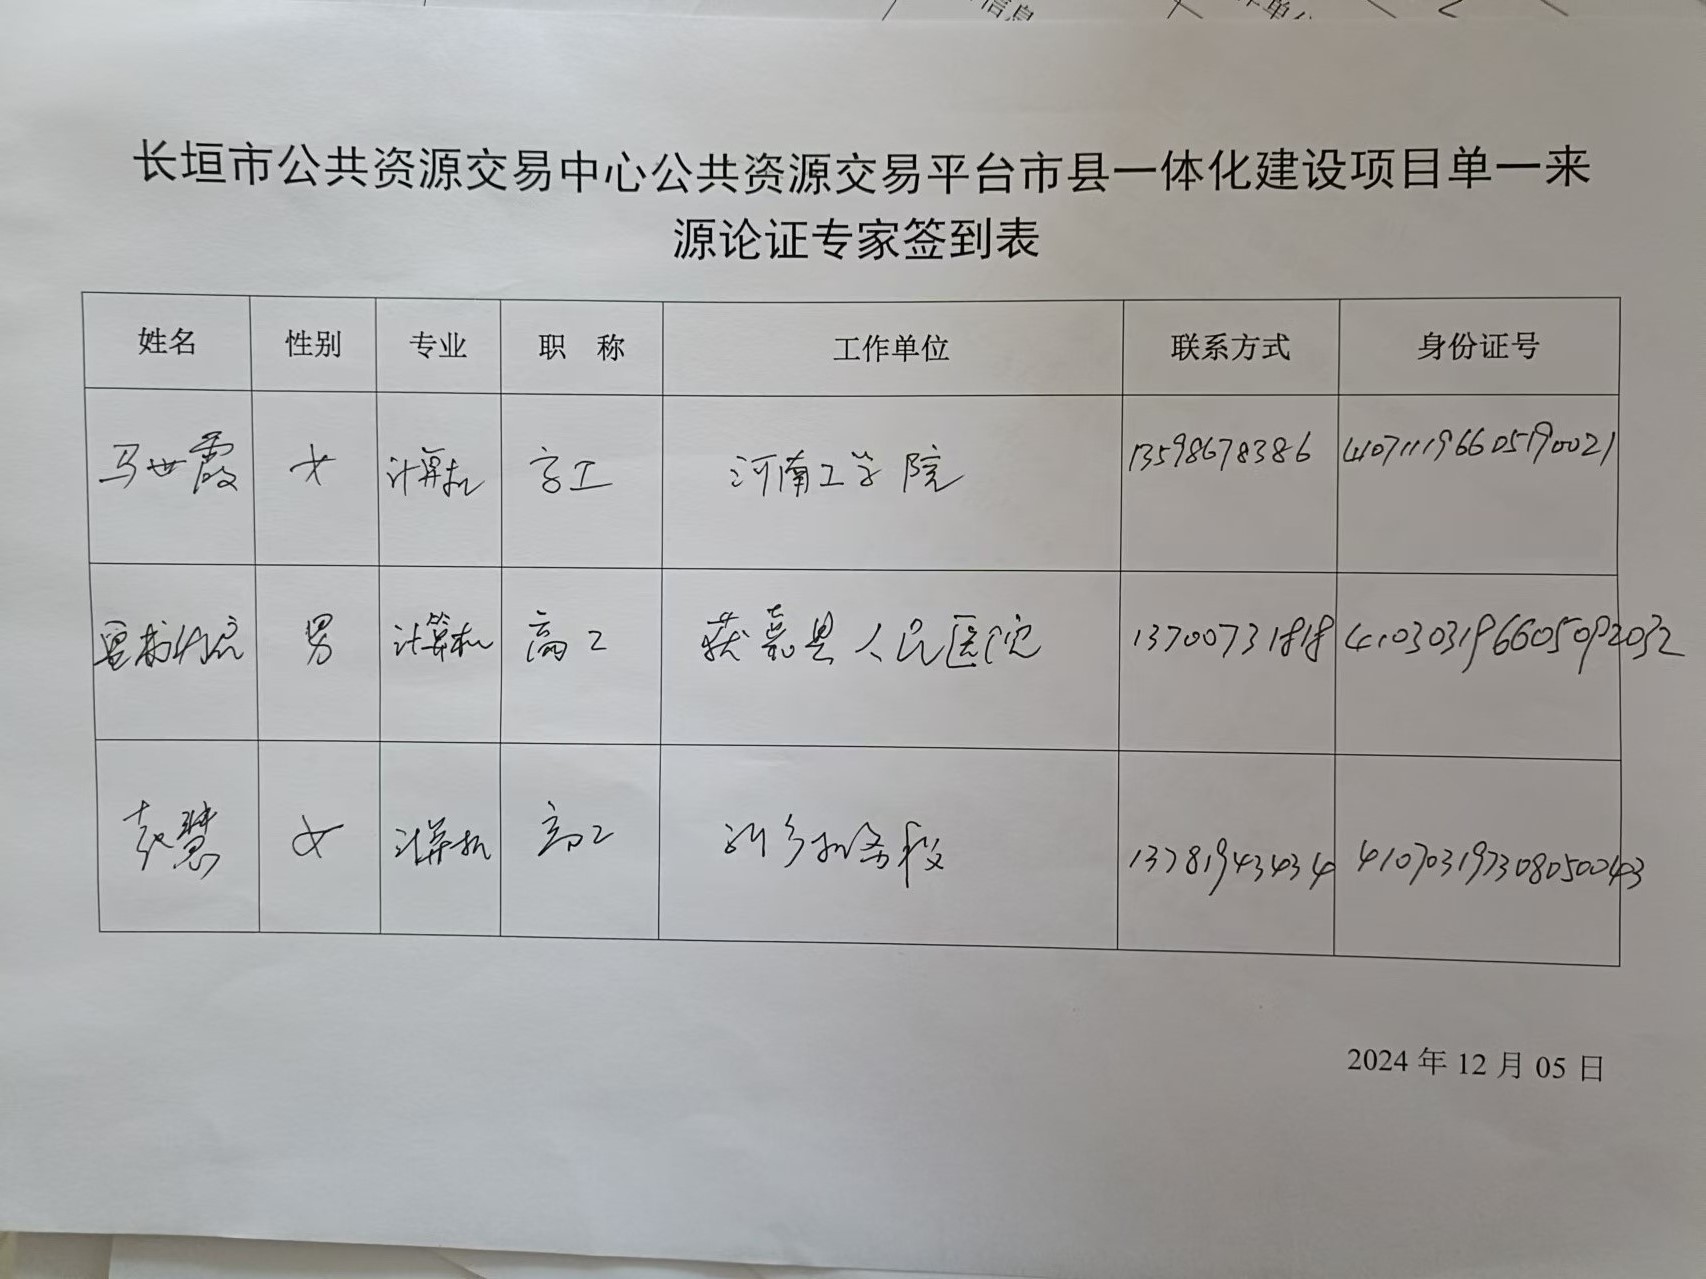 信息
长垣市公共资源交易中心公共资源交易平台市县一体化建设项目单一来
源论证专家签到表
姓名 性别 专业 职 称 工作单位 联系方式 身份证号
马世霞 女 计算机 高工 河南工学院 13598678386 410711196605190021
男 计算机 高工 获嘉县人民医院 13700731818 410303196605092032
赵慧 女 计算机 高工 13781943434 410703197308050043
2024 年 12 月 05 日